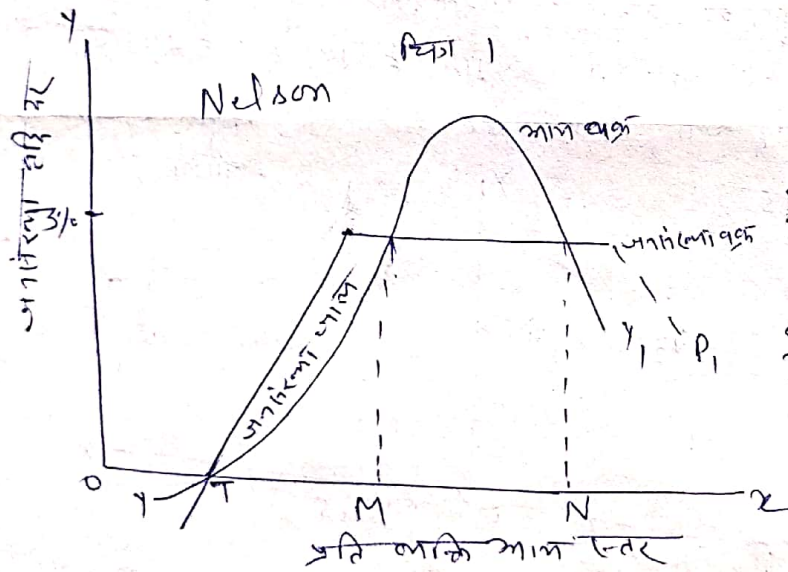 Y
चित्र 1
Nelson
आय वक्र
जनसंख्या वृद्धि दर
3%
जनसंख्या वक्र
जनसंख्या जाल
Y₁
P₁
O
Y
T
M
N
x
प्रति व्यक्ति आय स्तर